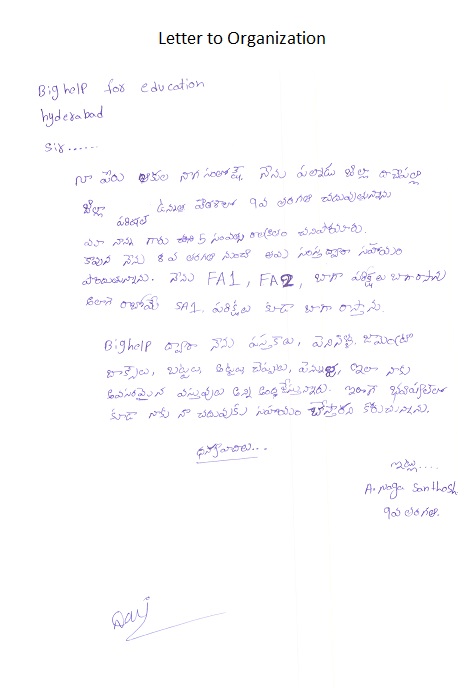 Letter to Organization
Big help for education
hyderabad
sir......
నా పేరు ఆకుల నాగ సంతోష్, నేను పల్నాడు జిల్లా దాచేపల్లి
జిల్లా పరిషత్ ఉన్నత పాఠశాలలో 9వ తరగతి చదువుతున్నాను
మా నాన్న గారు 5 సంవత్సరాల చనిపోయారు.
కావున నేను 8 వ తరగతి నుండి ఈ సంస్థ ద్వారా సహాయం
పొందుతున్నాను. నేను FA1, FA2, బాగా పరీక్షలు బాగా రాసాను
అలాగే రాబోయే SA1. పరీక్షలు కూడా బాగా రాస్తాను.
Bighelp ద్వారా నేను పుస్తకాలు, పెన్సిల్స్, జామెంట్రీ
బాక్సులు, బట్టలు, చెప్పులు, పెన్నులు, ఇలా నాకు
అవసరమైన వస్తువులు అన్ని అందచేస్తున్నారు. ఇలాగే భవిష్యత్‌లో
కూడా నాకు నా చదువుకు సహాయం చేస్తారని కోరుచున్నాను.
ధన్యవాదాలు...
ఇట్లు....
A. naga Santhosh
9వ తరగతి.